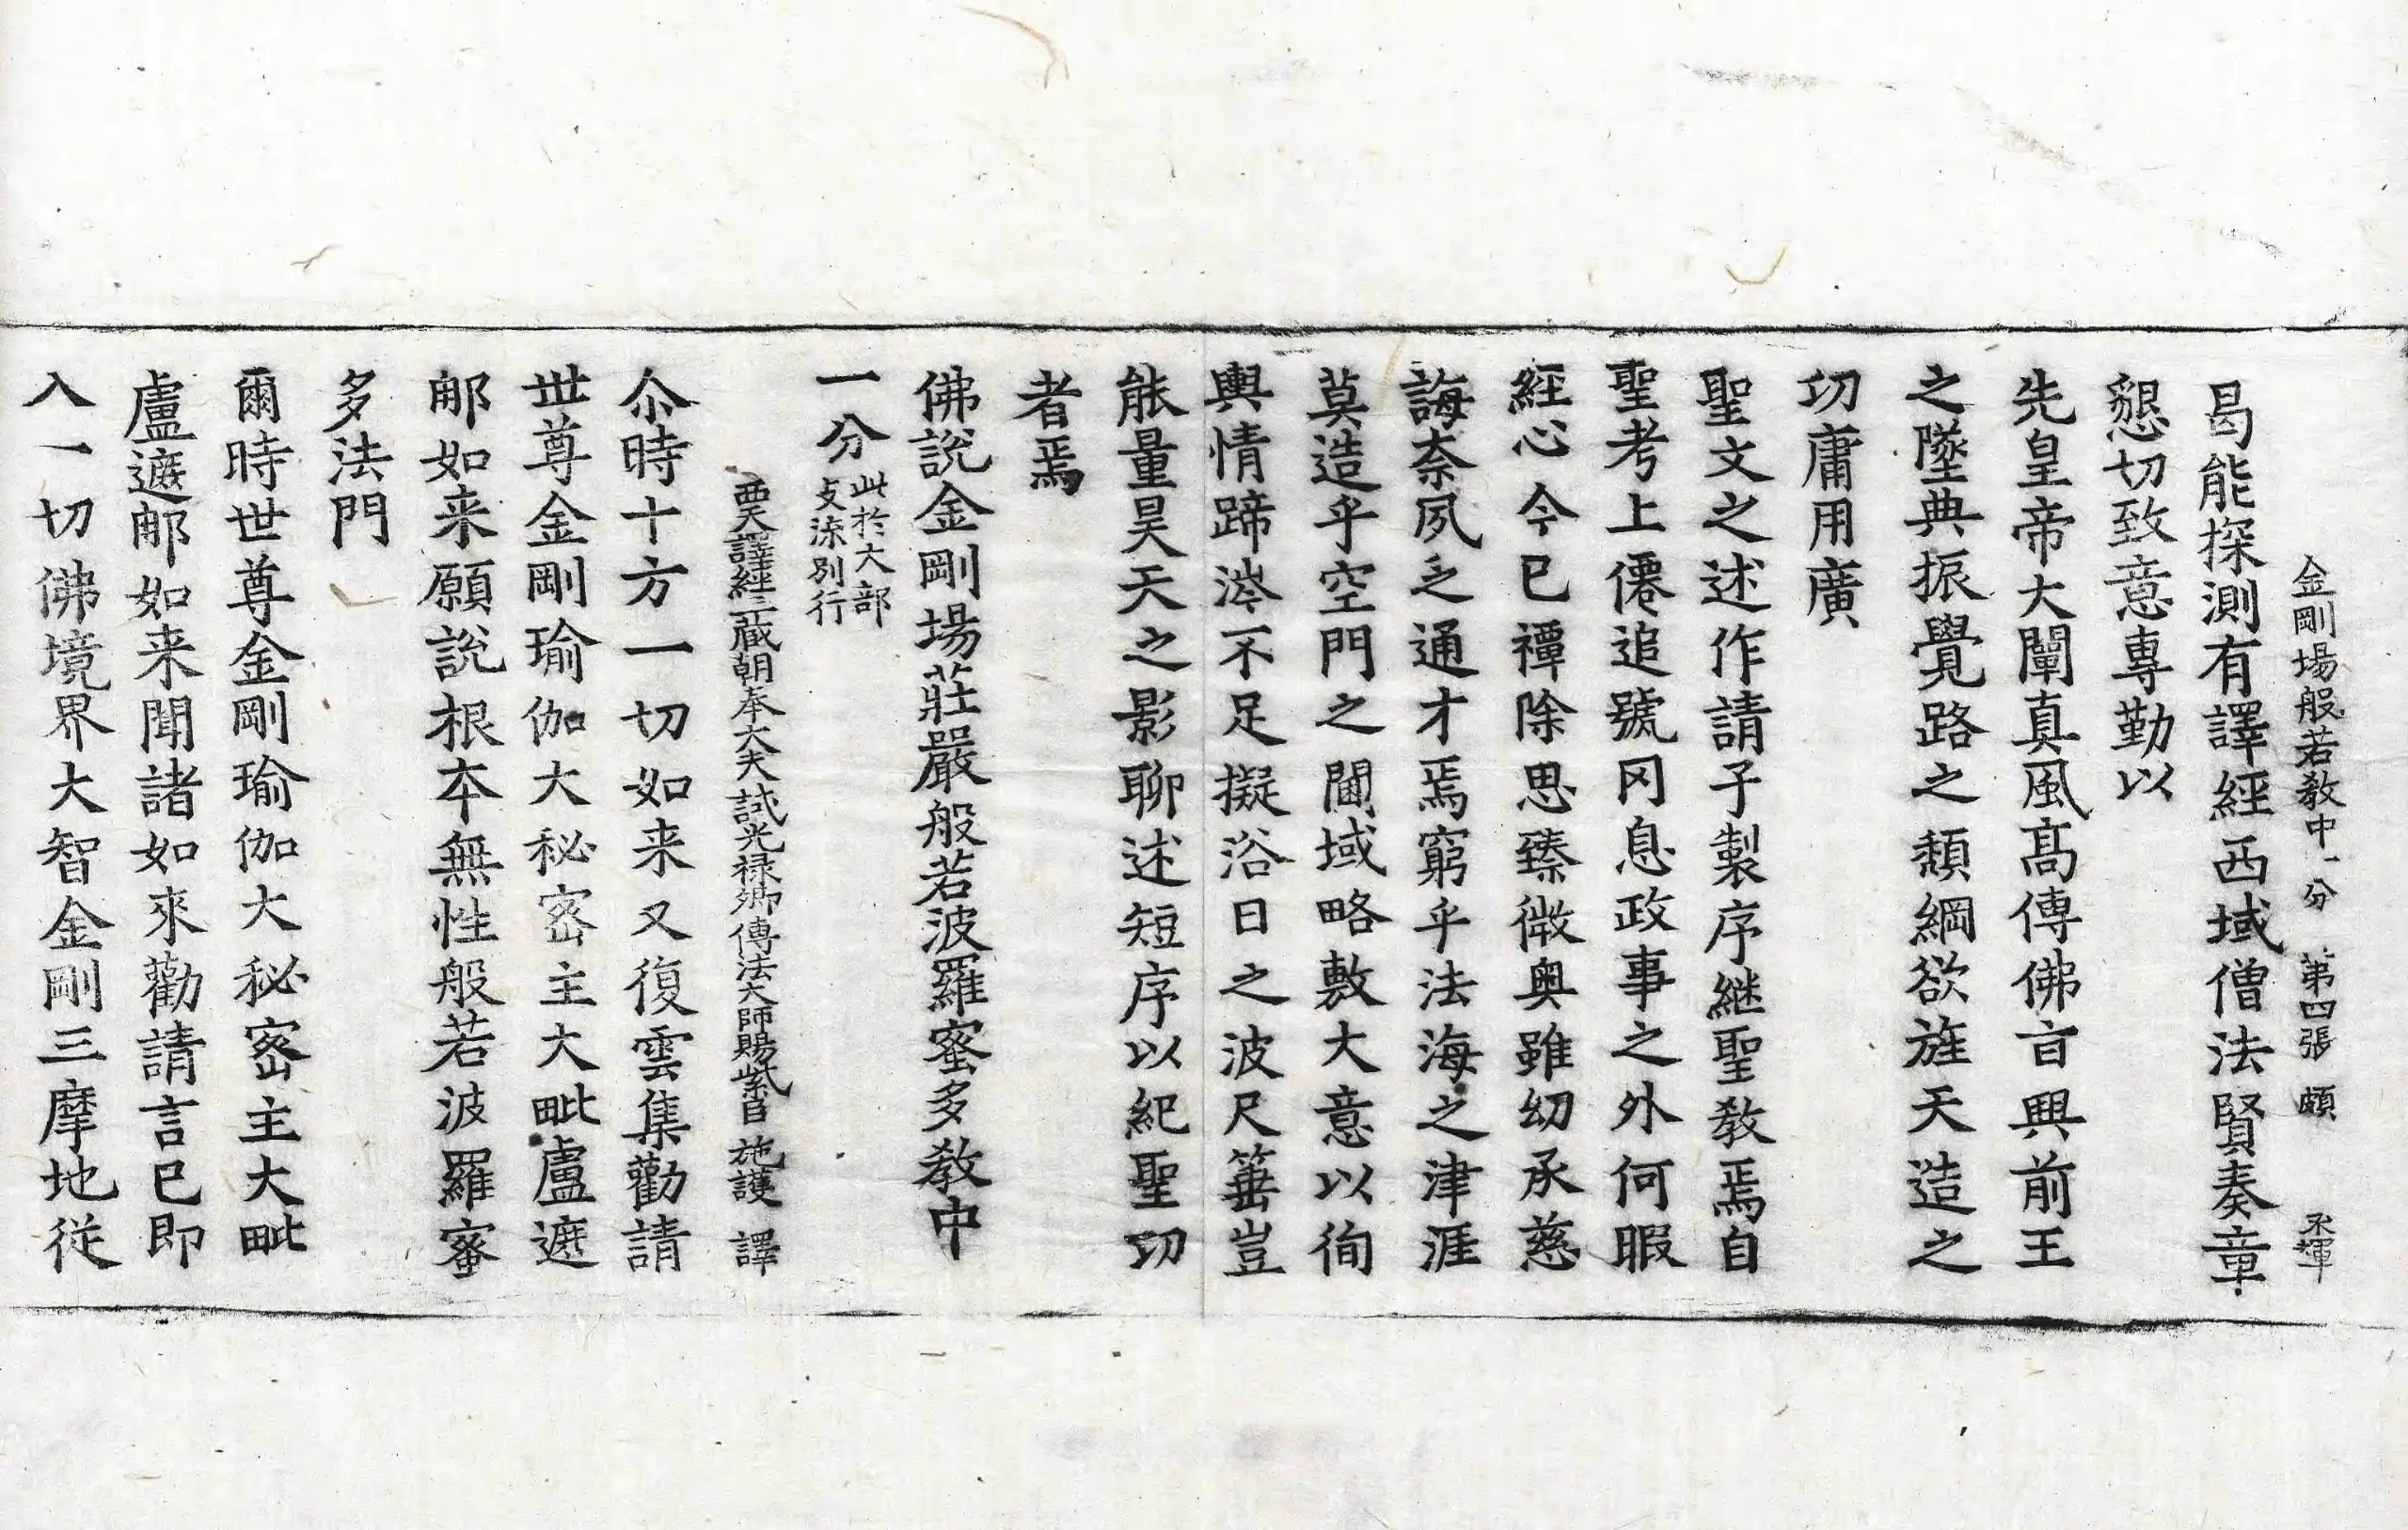 金剛場般若教中一分 第四張 頗 永暉
曷能探測有譯經西域僧法賢奏章
懇切致意專勤以
先皇帝大闡真風髙傳佛言興前王
之墜典振覺路之頽綱欲旌天造之
功庸用廣
聖文之述作請予製序継聖教焉自
聖考上僊追號罔息政事之外何暇
經心今已禫除思臻微奥雖幼承慈
誨奈夙乏通才焉窮乎法海之津涯
莫造乎空門之閫域略敷大意以徇
輿情蹄涔不足擬浴日之波尺箠豈
能量昊天之影聊述短序以紀聖功
者焉
佛說金剛場莊嚴般若波羅蜜多教中
一分 此於大部支流別行
西天譯經三蔵朝奉大夫試光禄卿傳法大師賜紫臣施護 譯
尒時十方一切如来又復雲集勸請
世尊金剛瑜伽大秘密主大毗盧遮
那如来願說根本無性般若波羅蜜
多法門
爾時世尊金剛瑜伽大秘密主大毗
盧遮那如来聞諸如來勸請言已即
入一切佛境界大智金剛三摩地從